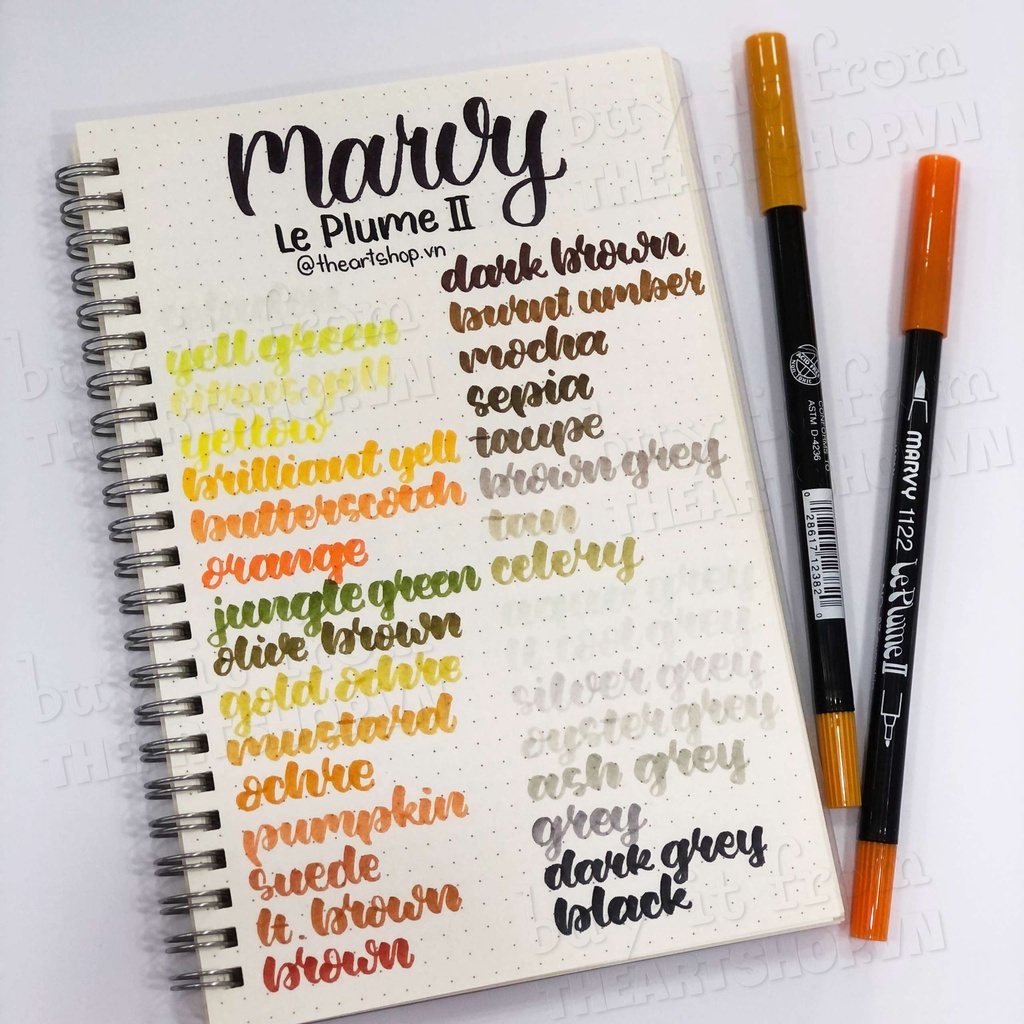 Marvy
Le Plume II
@theartshop.vn
yell green
citrus yell
yellow
brilliant yell
butterscotch
orange
jungle green
olive brown
gold ochre
mustard
ochre
pumpkin
suede
lt. brown
brown
dark brown
burnt umber
mocha
sepia
taupe
brown grey
tan
celery
silver grey
oyster grey
ash grey
grey
dark grey
black
CONFORMS TO
ASTM D-4236
0 28617 12382 0
MARVY 1122 Le Plume II
buy it from
THEARTSHOP.VN